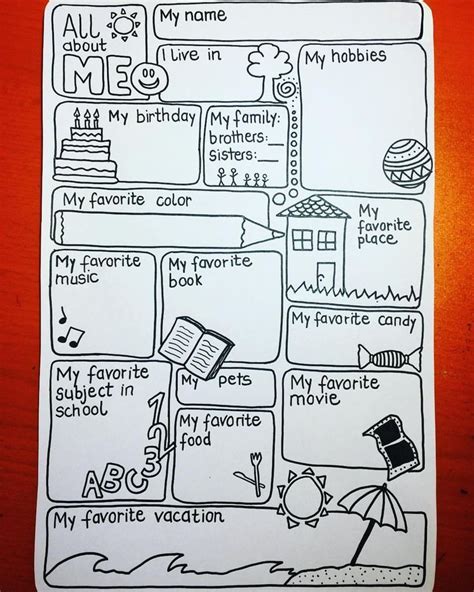 All
about
ME
My name
I live in
My hobbies
My birthday
My family:
brothers:__
Sisters:__
My favorite color
My
favorite
place
My favorite
music
My favorite
book
My favorite candy
My favorite
subject in
school
123
ABC
My pets
My favorite
movie
My favorite
food
My favorite vacation